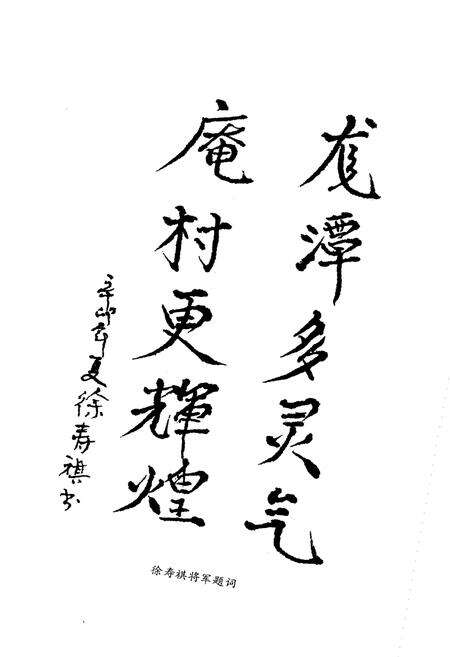 龙潭多灵气
庵村更輝煌
辛卯年夏徐寿祺书
徐寿祺将军题词